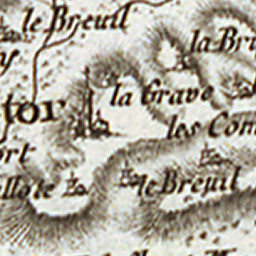 le Breuil
la Bri
la Grave
tor
les Com
ort
le Breuil